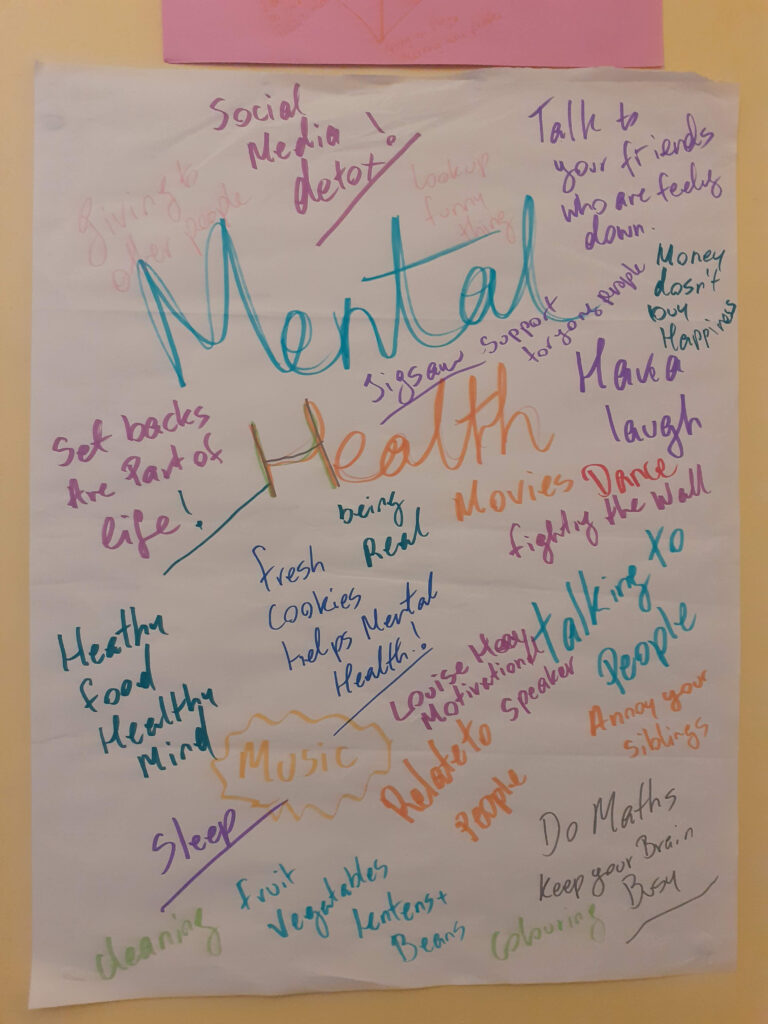 Social
Media !
detox
Talk to
your friends
who are feeling
down.
Giving to
other people
Look up
funny
thing
Mental
Money
dosn't
buy
Happiness
Jigsaw Support
for yong people
Health
Have a
laugh
Set backs
Are Part of
life!
being
Real
Movies
Dance
fighting the Wall
fresh
cookies
helps Mental
Health!!
Talking to
People
Heathy
food
Healthy
Mind
Louise Heay
Motivational
Speaker
Annoy your
siblings
Music
Relate to
People
Sleep
Do Maths
Keep your Brain
Busy
fruit
vegatables
lentens+
Beans
cleaning
colouring